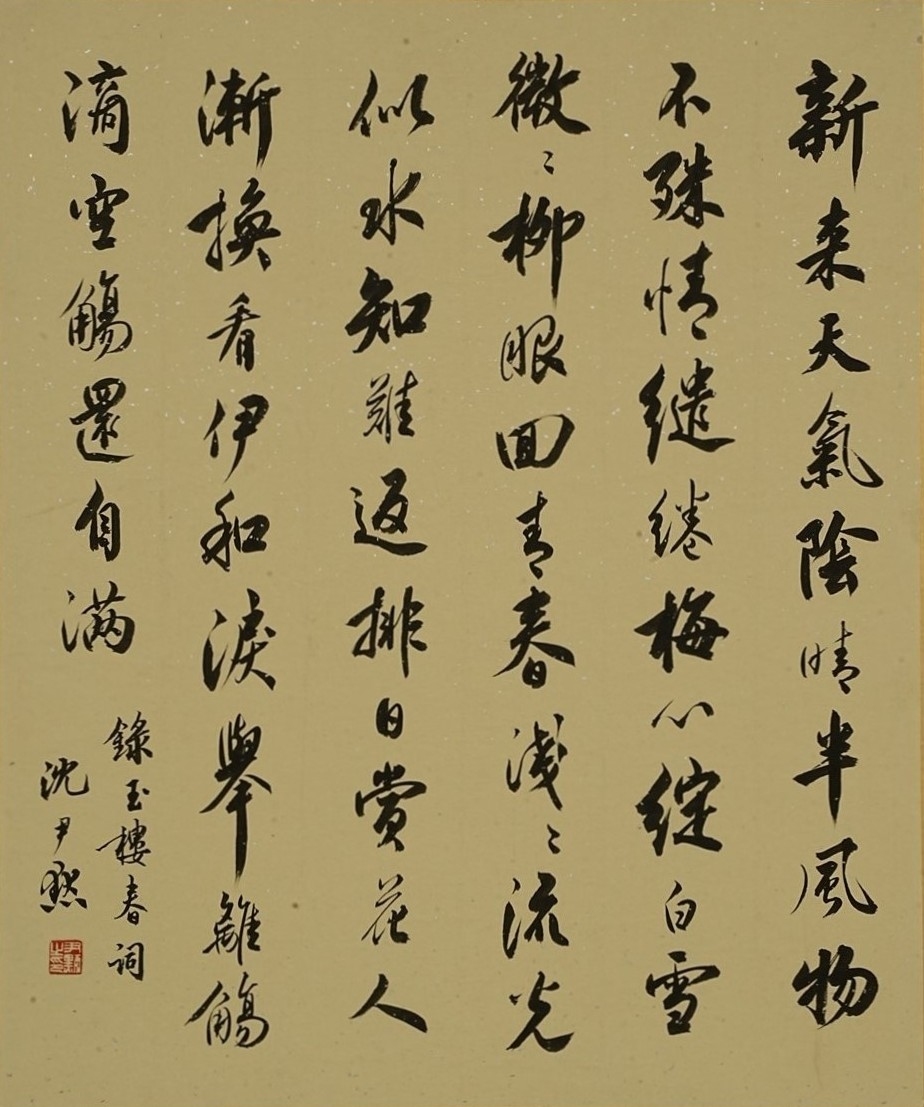 新来天氣陰晴半風物
不殊情繾綣梅心綻白雪
微〻柳眼回青春淺〻流光
似水知難返排日賞花人
漸換看伊和淚舉離觴
滴空觴還自滿
錄玉樓春詞
沈尹默
尹默之印